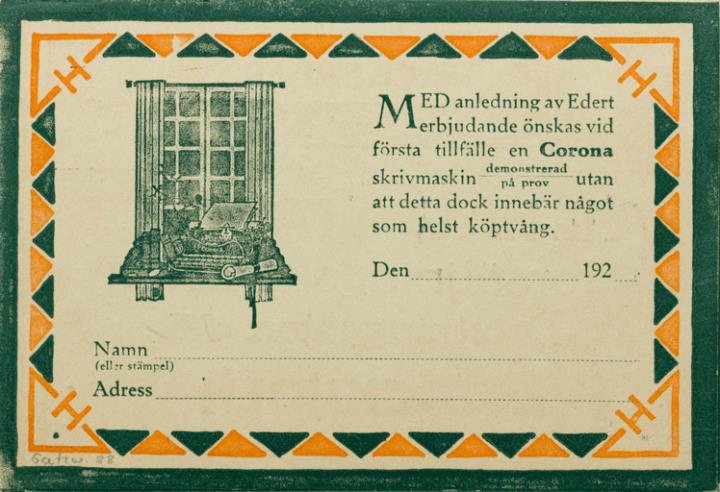 MED anledning av Edert
erbjudande önskas vid
första tillfälle en Corona
skrivmaskin demonstrerad
på prov utan
att detta dock innebär något
som helst köptvång.
Den 192
Namn
(eller stämpel)
Adress
H
H
H
H